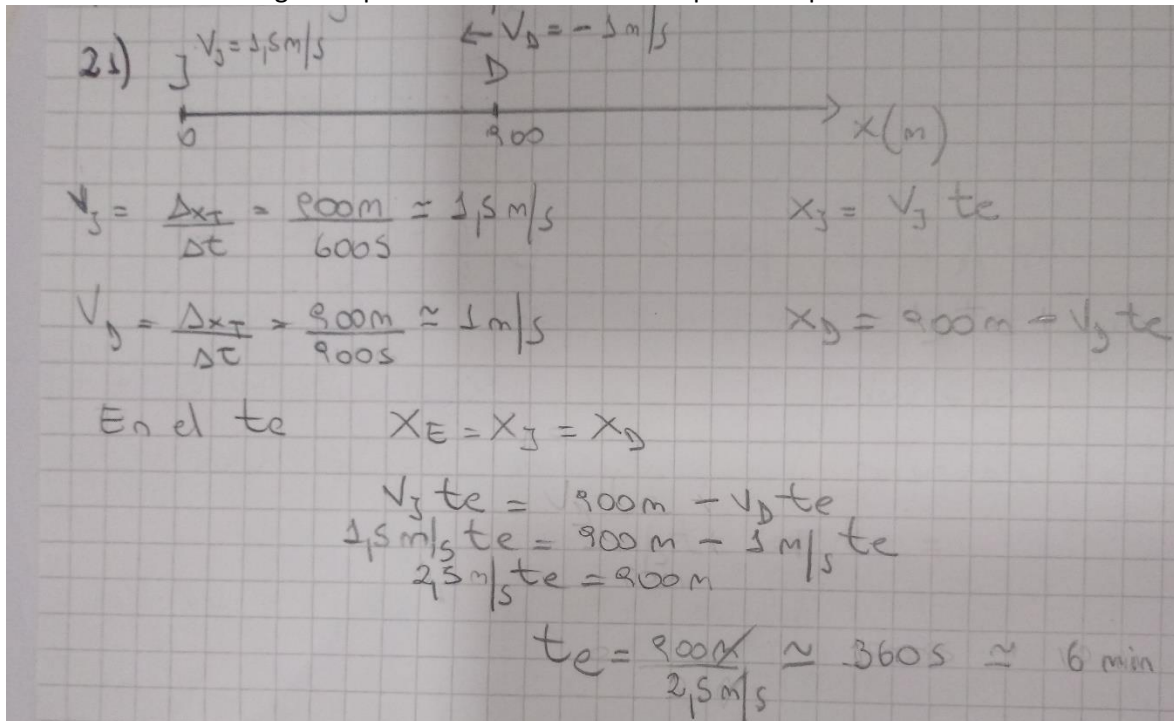 21) J V_J = 1,5 m/s ← V_D = - 1 m/s
D
0 900 x (m)
V_J = Δx_T / Δt = 900m / 600s = 1,5 m/s x_J = V_J te
V_D = Δx_T / Δt = 900m / 900s ≈ 1 m/s x_D = 900m - V_D te
En el te X_E = X_J = X_D
V_J te = 900m - V_D te
1,5 m/s te = 900 m - 1 m/s te
2,5 m/s te = 900m
te = 900m / 2,5 m/s ≈ 360 s ≈ 6 min